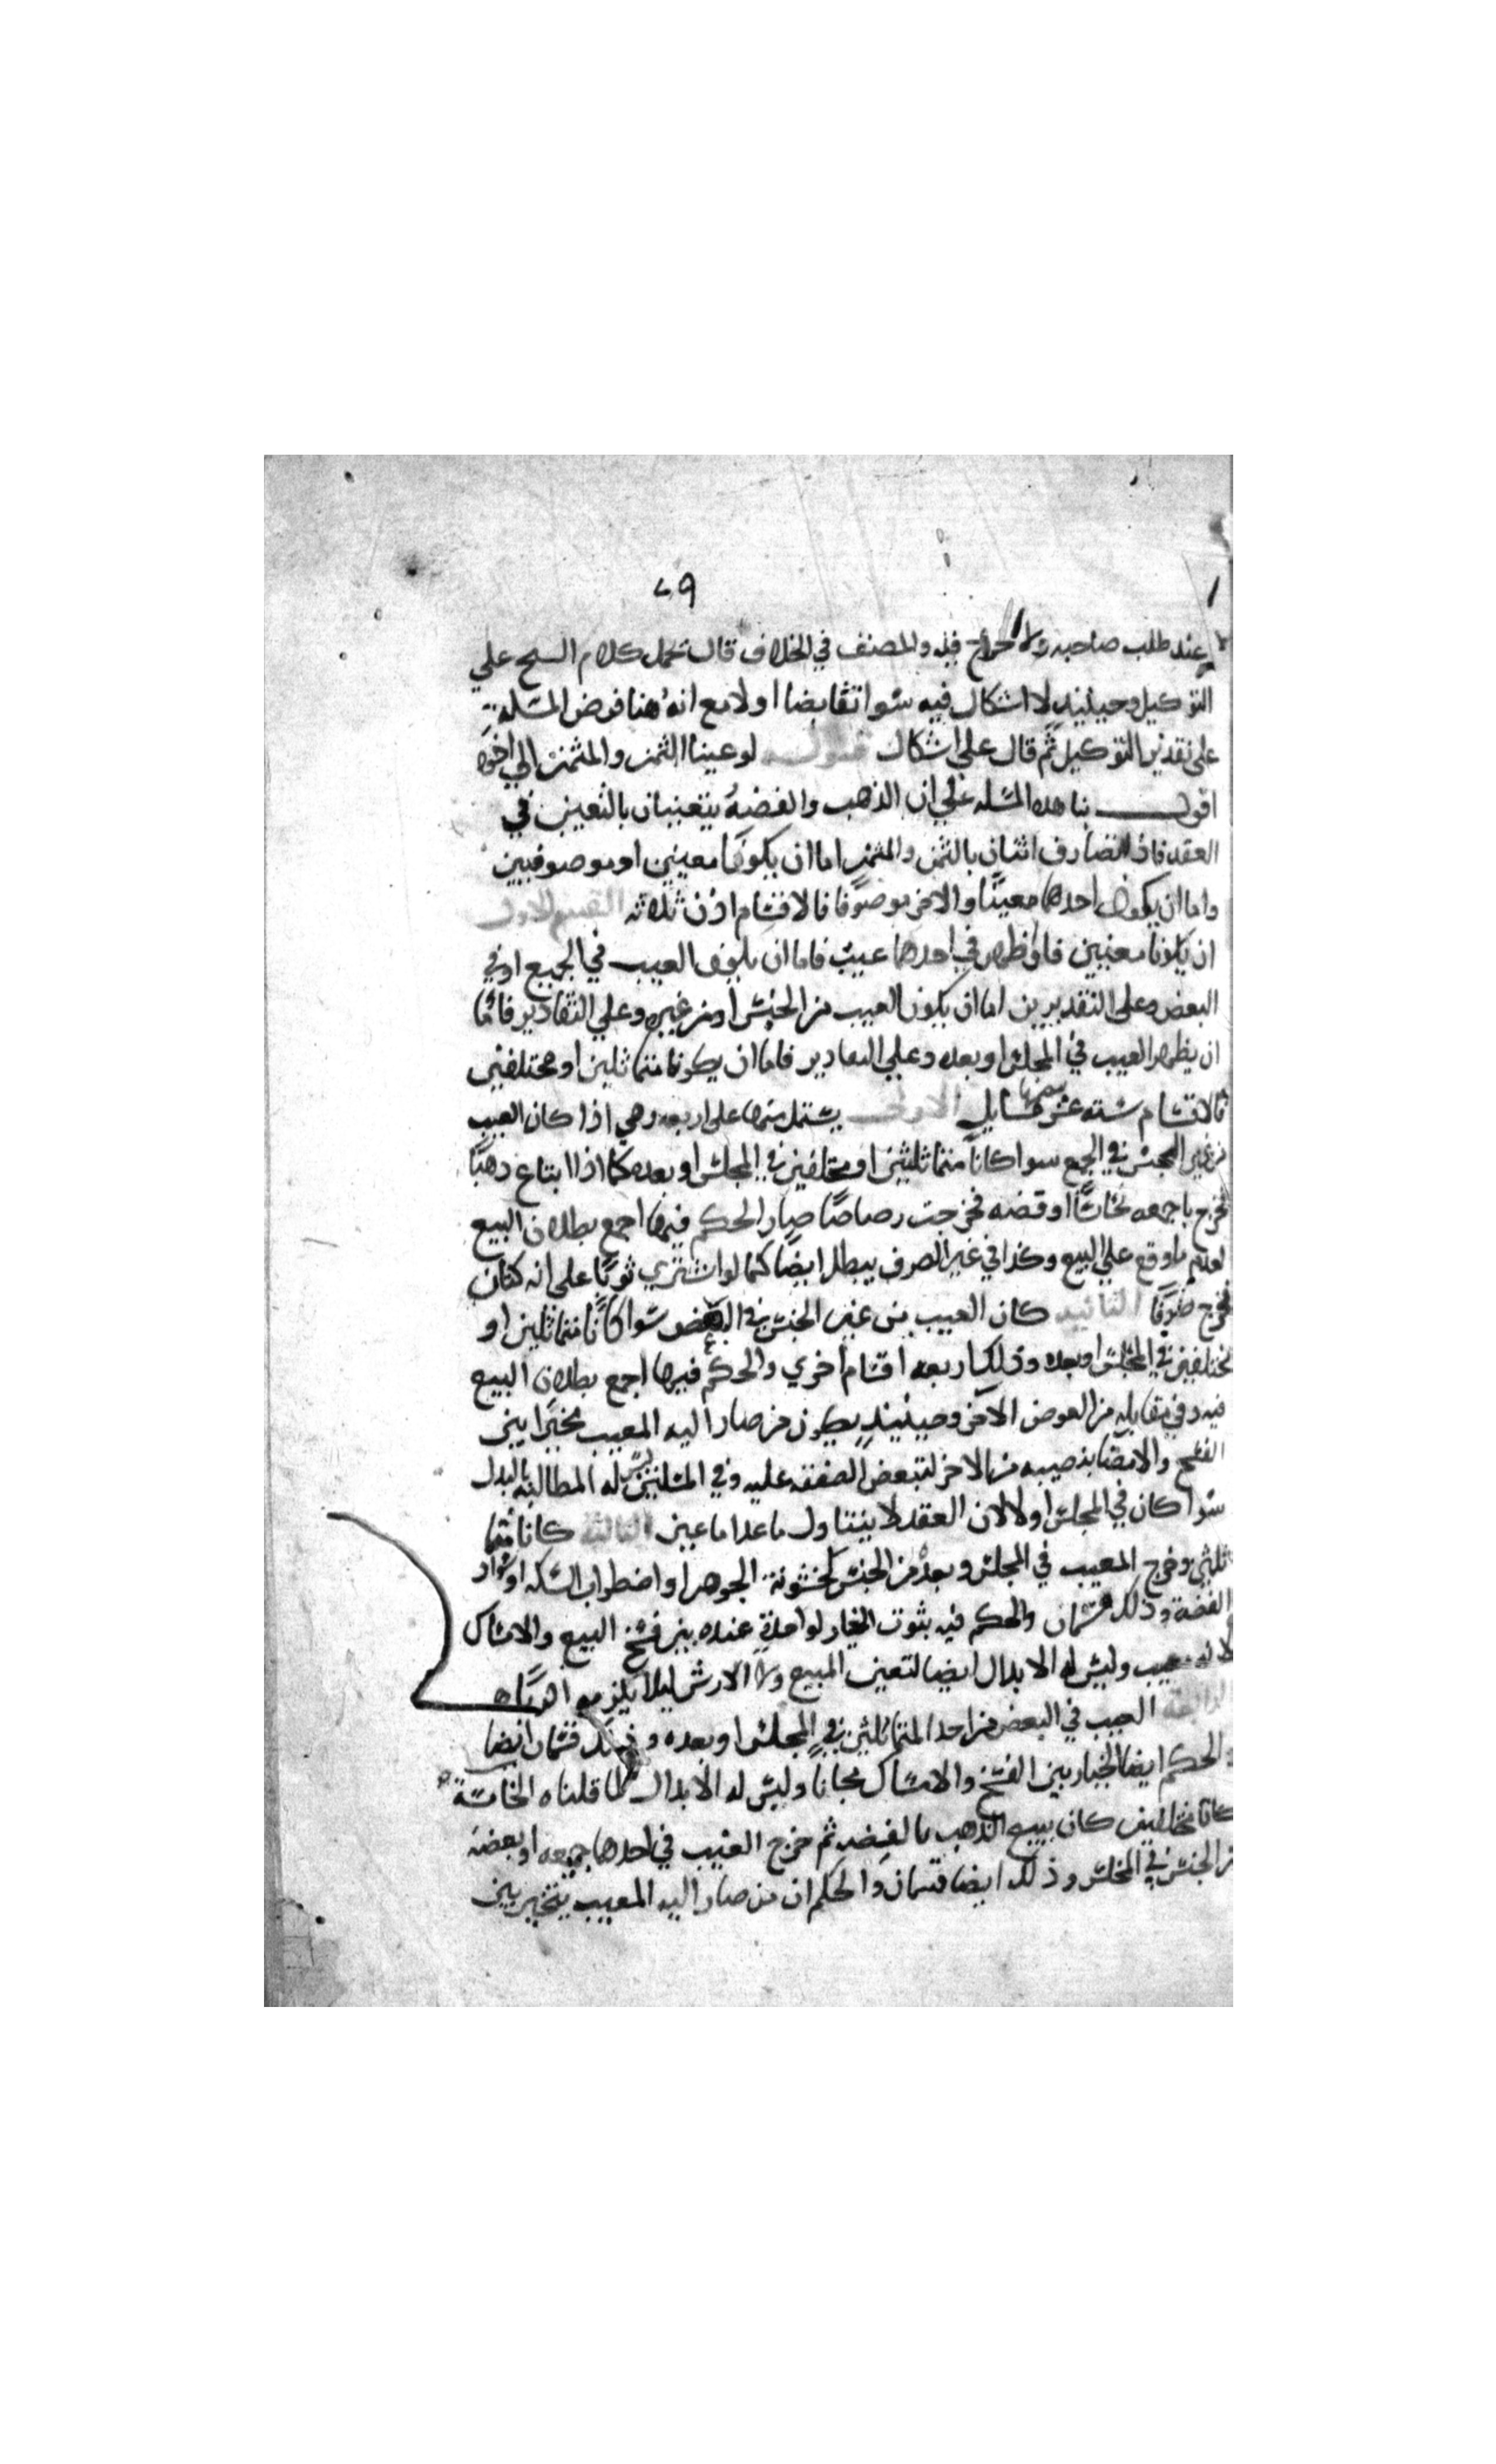 ٢٩
عند طلب صاحبه ولا حرج فيه والمصنف في الخلاف قال تحمل كلام الشيخ علي
التوكيل وحينيذ لا اشكال فيه سوا تقابضا اولا مع انه هنا فرض المسله
على تقدير التوكيل ثم قال على اشكال قوله لو عينا الثمن والمثمن الي اخره
اقول بنا هذه المسله علي ان الذهب والفضة يتعينان بالتعيين في
العقد فاذا تصارف اثنان بالثمن والمثمن اما ان يكونا معينين او موصوفين
واما ان يكون احدهما معينا والاخر موصوفا فالاقسام اذن ثلاثه القسم الاول
ان يكونا معينين فاذا ظهر في احدهما عيب فاما ان يكون العيب في الجميع او في
البعض وعلى التقديرين اما ان يكون العيب من الجنس او من غيره وعلي التقادير فاما
ان يظهر العيب في المجلس او بعده وعلي التقادير فاما ان يكونا متماثلين او مختلفين
فالاقسام سته عشر مسايل الاولى يشتمل منها على اربعه وهي اذا كان العيب
من غير الجنس في الجميع سوا كانا متماثلين او مختلفين في المجلس او بعده كما اذا ابتاع ذهبا
فخرج باجمعه نحاسا او فضه فخرجت رصاصا صار الحكم فيها اجمع بطلان البيع
لعدم ما وقع علي البيع وكذا في غير الصرف يبطل ايضا كما لو اشتري ثوبا على انه كتان
فخرج صوفا الثانيه كان العيب من غير الجنس في البعض سوا كانا متماثلين او
مختلفين في المجلس او بعده وذلك اربعه اقسام اخري والحكم فيها اجمع بطلان البيع
فيه وفي مقابله من العوض الاخر وحينيذ يكون من صار اليه المعيب مخيرا بين
الفسخ والامضا بنصيبه من الاخر لتبعض الصفقه عليه وفي المسلتين ليس له المطالبه بالبدل
سوا كان في المجلس اولا لان العقد لا يتناول ما عدا ما عين الثالثة كانا متما
ثلين وخرج المعيب في المجلس وبعده من الجنس كخشونة الجوهر او اضطراب السكه او سواد
الفضة وذلك قسمان والحكم فيه بثوت الخيار لواحدة عنده بين فسخ البيع والامساك
لانه معيب وليس له الابدال ايضا لتعين المبيع ولا الارش ليلا يلزمه الربا ه
الرابعة العيب في البعض من احد المتماثلين في المجلس او بعده وذلك قسمان ايضا
والحكم ايضا الخيار بين الفسخ والامساك مجانا وليس له الابدال لما قلناه الخامسة
كانا مختلفين كان بيع الذهب بالفضه ثم خرج العيب في احدهما جميعه او بعضه
من الجنس في المجلس وذلك ايضا قسمان والحكم ان من صار اليه المعيب يتخير بين